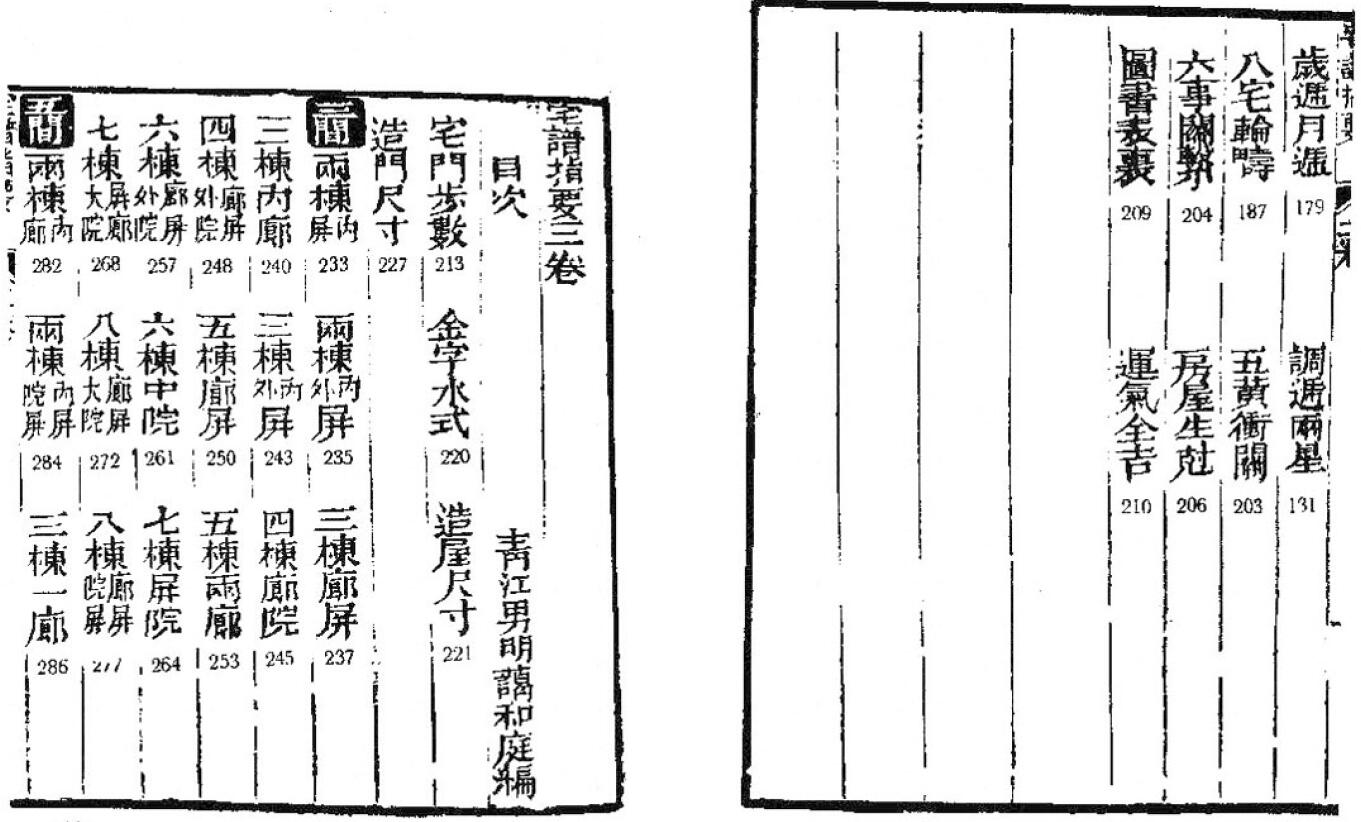 歲遁月遁 179 調遁兩星 131
八宅輪疇 187 五黃衝關 203
六事關繫 204 房屋生尅 206
圖書表裏 209 運氣全吉 210
宅譜指要三卷
目次 靑江男明藹和庭編
宅門步數 213 金字水式 220 造屋尺寸 221
造門尺寸 227
三間 兩棟內屏 233 兩棟內外屏 235 三棟廊屏 237
三棟內廊 240 三棟內外屏 243 四棟廊院 245
四棟廊屏外院 248 五棟廊屏 250 五棟兩廊 253
六棟廊屏外院 257 六棟中院 261 七棟屏院 264
七棟屏廊大院 268 八棟廊屏大院 272 八棟廊屏院屏 277
五間 兩棟內廊 282 兩棟內屏院屏 284 三棟一廊 286